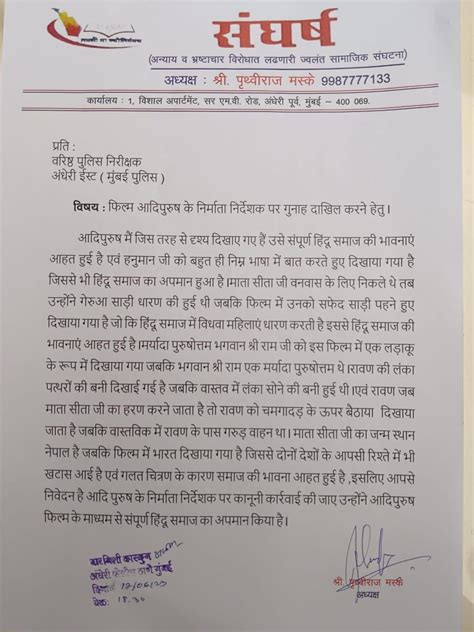 संघर्ष
(अन्याय व भ्रष्टाचार विरोधात लढणारी ज्वलंत सामाजिक संघटना)
अध्यक्ष : श्री. पृथ्वीराज मस्के 9987777133
कार्यालय : 1, विशाल अपार्टमेंट, सर एम.वी. रोड, अंधेरी पूर्व, मुंबई - 400 069.
प्रति :
वरिष्ठ पुलिस निरीक्षक
अंधेरी ईस्ट ( मुंबई पुलिस )
विषय : फिल्म आदिपुरुष के निर्माता निर्देशक पर गुनाह दाखिल करने हेतु ।
आदिपुरुष मैं जिस तरह से दृश्य दिखाए गए हैं उसे संपूर्ण हिंदू समाज की भावनाएं
आहत हुई है एवं हनुमान जी को बहुत ही निम्न भाषा में बात करते हुए दिखाया गया है
जिससे भी हिंदू समाज का अपमान हुआ है। माता सीता जी वनवास के लिए निकले थे तब
उन्होंने गेरुआ साड़ी धारण की हुई थी जबकि फिल्म में उनको सफेद साड़ी पहने हुए
दिखाया गया है जो कि हिंदू समाज में विधवा महिलाएं धारण करती है इससे हिंदू समाज की
भावनाएं आहत हुई है। मर्यादा पुरुषोत्तम भगवान श्री राम जी को इस फिल्म में एक लड़ाकू
के रूप में दिखाया गया जबकि भगवान श्री राम एक मर्यादा पुरुषोत्तम थे। रावण की लंका
पत्थरों की बनी दिखाई गई है जबकि वास्तव में लंका सोने की बनी हुई थी। एवं रावण जब
माता सीता जी का हरण करने जाता है तो रावण को चमगादड़ के ऊपर बैठाया दिखाया
जाता है जबकि वास्तविक में रावण के पास गरुड़ वाहन था। माता सीता जी का जन्म स्थान
नेपाल है जबकि फिल्म में भारत दिखाया गया है जिससे दोनों देशों के आपसी रिश्ते में भी
खटास आई है एवं गलत चित्रण के कारण समाज की भावना आहत हुई है ,इसलिए आपसे
निवेदन है आदि पुरुष के निर्माता निर्देशक पर कानूनी कार्रवाई की जाए उन्होंने आदिपुरुष
फिल्म के माध्यम से संपूर्ण हिंदू समाज का अपमान किया है।
अंधेरी ठाणे मुंबई
18.30
श्री. पृथ्वीराज मस्के
अध्यक्ष